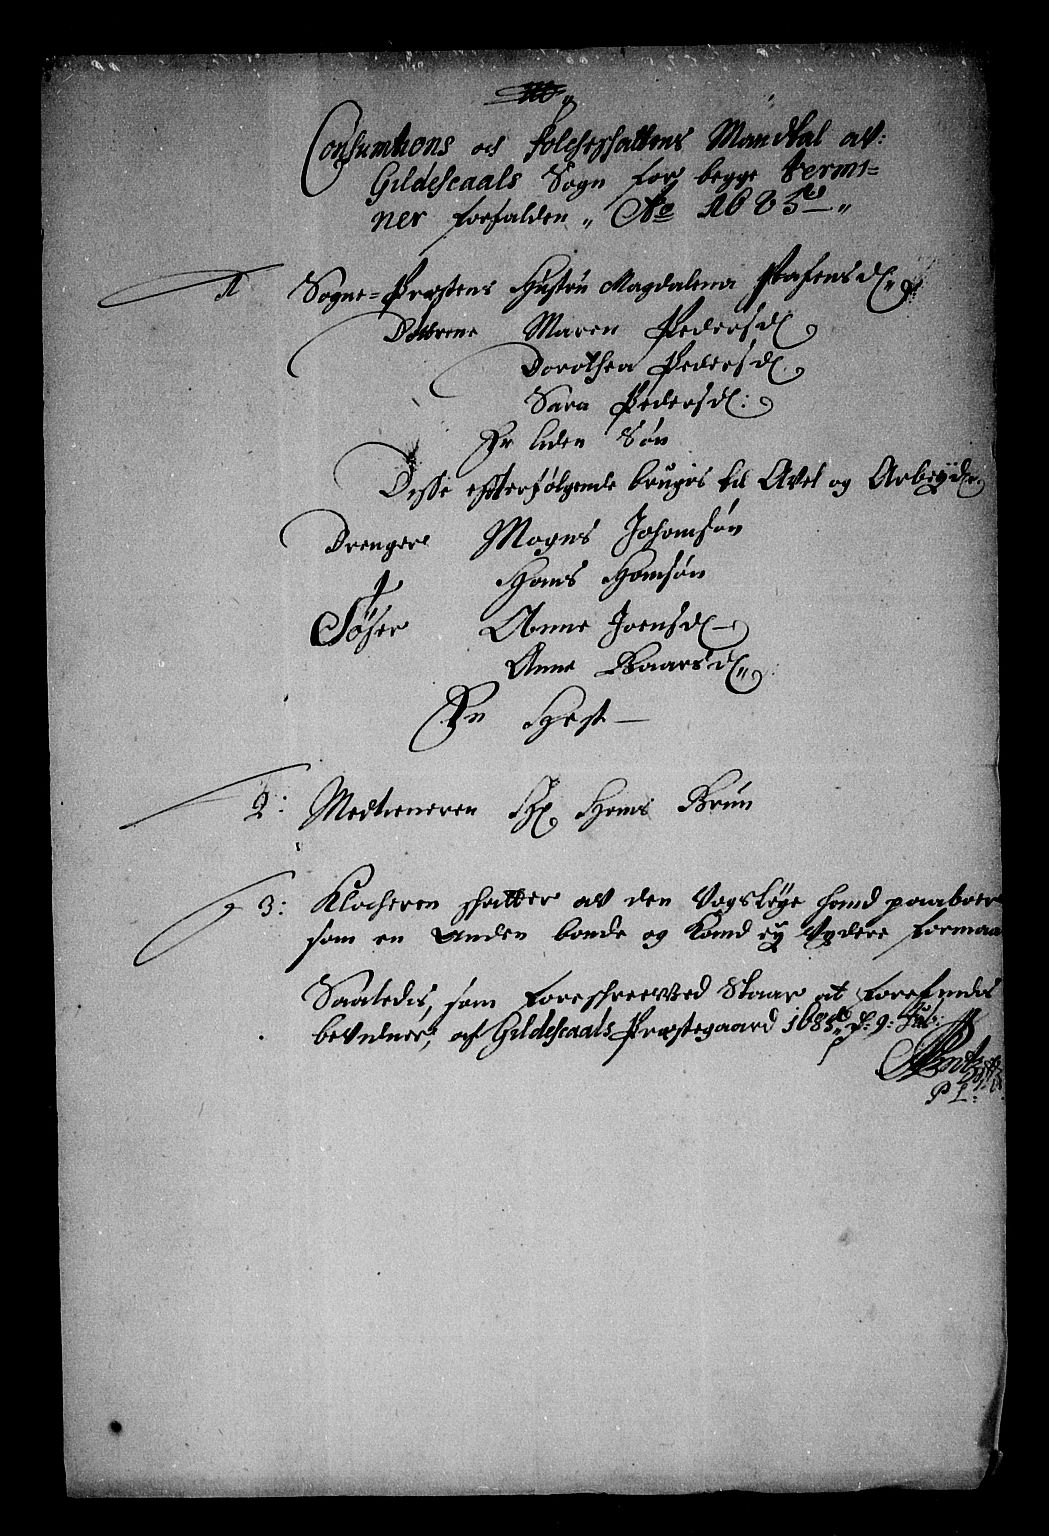 Consumtions och folcheskattens Mandtal af:
Gildescaals Sogn for begge termi=
ner forfalden „ Ao 1685 „
1 Sogne=Præstens Hustru Magdalena
Døtrene Maren Pedersd:
Dorothea Pedersd:
Sara Pedersd:
En liden Søn
Disse efterfølgende bruges til Avel og Arbeyde.
Drenger Mogns Johansøn
Hans Hansøn
Anne Joensd:
Anne Baarsd:
En Hest —
2: Medtieneren Hr Hans Brun
3: Klocheren skatter af den hand paaboer
som en Anden bonde og hand ey Vydere formaa
Saaledis, som foreskreevned Staar at forefindes
bevidner, af Gildescaals Præstegaard 1685 d: 9: Jul:
P L: